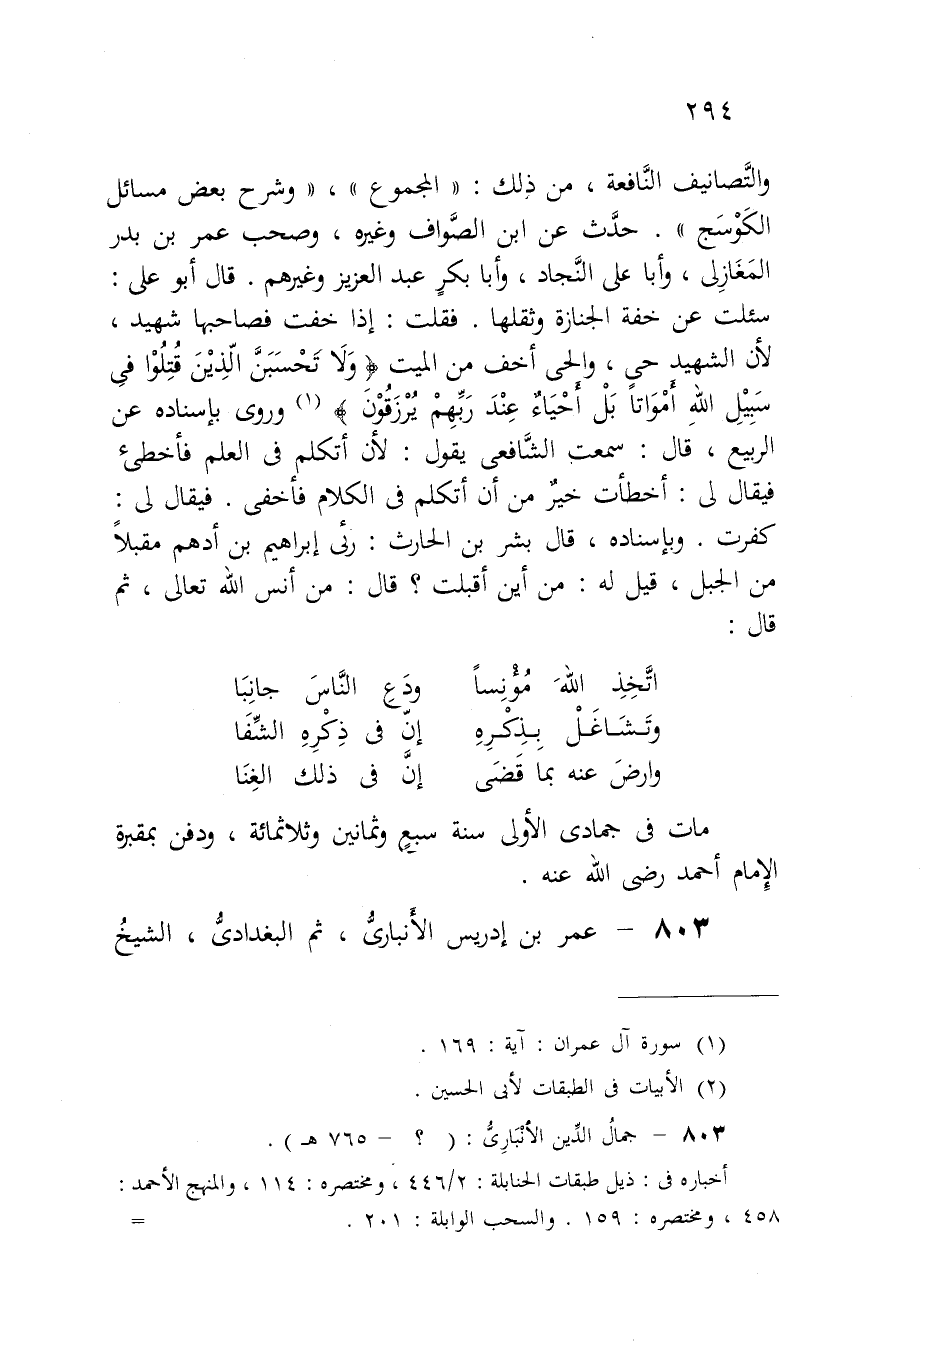 ٢٩٤
والتَّصانيف النَّافعة ، من ذلك : « المجموع » ، « وشرح بعض مسائل
الكَوْسَج » . حدَّث عن ابن الصَّواف وغيره ، وصحب عمر بن بدر
المَغَازِلى ، وأبا على النَّجاد ، وأبا بكرٍ عبد العزيز وغيرهم . قال أبو على :
سئلت عن خفة الجنازة وثقلها . فقلت : إذا خفت فصاحبها شهيد ،
لأن الشهيد حى ، والحى أخف من الميت ﴿ وَلَا تَحْسَبَنَّ الَّذِيْنَ قُتِلُوْا فِى
سَبِيْلِ اللهِ أَمْوَاتاً بَلْ أَحْيَاءٌ عِنْدَ رَبِّهِمْ يُرْزَقُوْنَ ﴾ (١) وروى بإسناده عن
الربيع ، قال : سمعت الشَّافعى يقول : لأن أتكلم فى العلم فأخطىء
فيقال لى : أخطأت خيرٌ من أن أتكلم فى الكلام فأخفى . فيقال لى :
كفرت . وبإسناده ، قال بشر بن الحارث : رئى إبراهيم بن أدهم مقبلاً
من الجبل ، قيل له : من أين أقبلت ؟ قال : من أنس الله تعالى ، ثم
قال :
اتَّخِذِ اللهَ مُؤْنِساً ودَعِ النَّاسَ جانِبَا
وتَشَاغَلْ بِذِكْرِهِ إنّ فى ذِكْرِهِ الشِّفَا
وارضَ عنه بما قَضَى إنَّ فى ذلك الغِنَا
مات فى جمادى الأولى سنة سبعٍ وثمانين وثلاثمائة ، ودفن بمقبرة
الإمام أحمد رضى الله عنه .
٨٠٣ – عمر بن إدريس الأَنبارىُّ ، ثم البغدادىُّ ، الشيخُ
(١) سورة آل عمران : آية : ١٦٩ .
(٢) الأبيات فى الطبقات لأبى الحسين .
٨٠٣ – جمالُ الدِّين الأنْبَارِىُّ : ( ؟ – ٧٦٥ هـ ) .
أخباره فى : ذيل طبقات الحنابلة : ٤٤٦/٢ ، ومختصره : ١١٤ ، والمنهج الأحمد :
٤٥٨ ، ومختصره : ١٥٩ . والسحب الوابلة : ٢٠١ . =